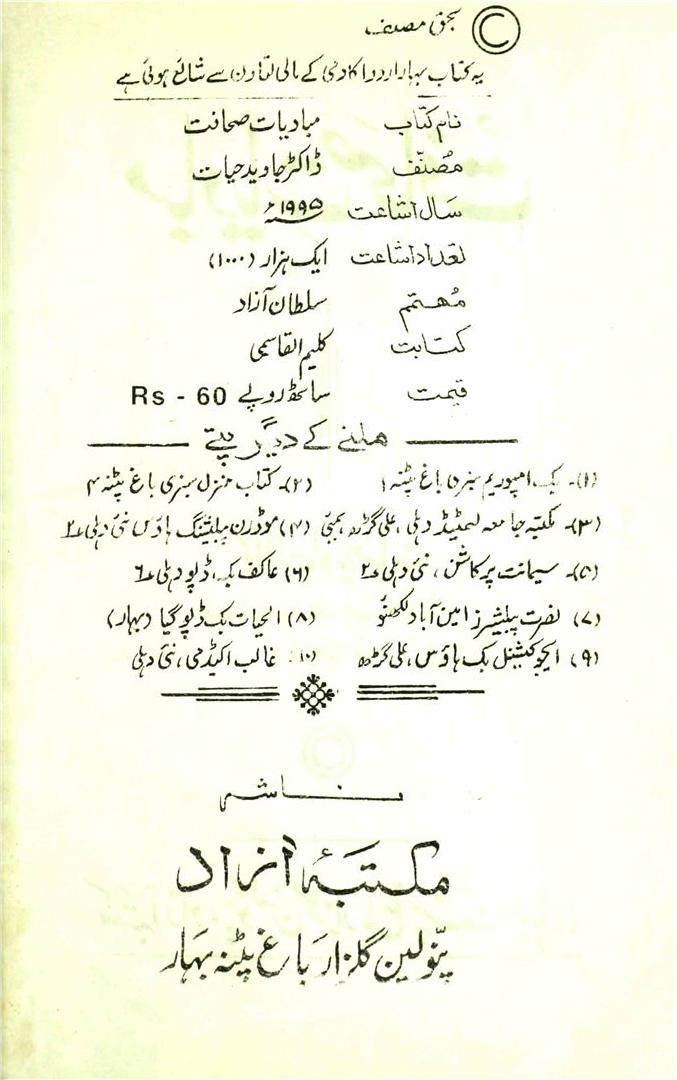 © بحق مصنف
یہ کتاب بہار اردو اکادمی کے مالی تعاون سے شائع ہوئی ہے
نام کتاب مبادیات صحافت
مُصنّف ڈاکٹر جاوید حیات
سَال اشاعت ۱۹۹۵ء
تعداد اشاعت ایک ہزار (۱۰۰۰)
مُہتمم سلطان آزاد
کتابت کلیم القاسمی
قیمت ساٹھ روپے Rs - 60
ملنے کے دیگر پتے
(۱)۔ بک امپوریم سبزی باغ پٹنہ ۴ (۲)۔ کتاب منزل سبزی باغ پٹنہ ۴
(۳)۔ مکتبہ جامعہ لمیٹیڈ دہلی، علی گڑھ، بمبئی (۴) موڈرن پبلشنگ ہاؤس نئی دہلی ۲
(۵)۔ سیمانت پرکاشن، نئی دہلی ۲ (۶) عاکف بک ڈپو دہلی ۶
(۷) نصرت پبلیشرز امین آباد لکھنؤ (۸) الحیات بک ڈپو گیا (بہار)
(۹) ایجوکیشنل بک ہاؤس، علی گڑھ (۱۰) غالب اکیڈمی، نئی دہلی
ناشر
مکتبۂ آزاد
پنّو لین گلزار باغ پٹنہ بہار